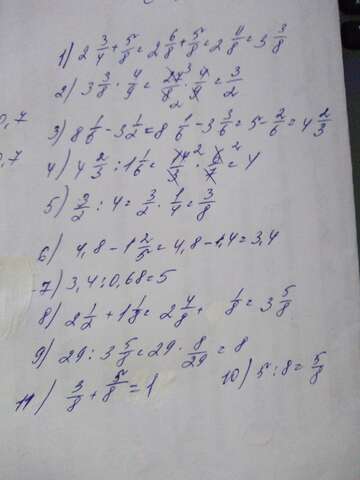 1) 2 3/4 + 5/8 = 2 6/8 + 5/8 = 2 11/8 = 3 3/8
2) 3 3/8 · 4/9 = 27/8 · 4/9 = 3/2
0,7
3) 8 1/6 - 3 1/2 = 8 1/6 - 3 3/6 = 5 - 2/6 = 4 2/3
0,7
4) 4 2/3 : 1 1/6 = 14/3 · 6/7 = 4
5) 3/2 : 4 = 3/2 · 1/4 = 3/8
6) 4,8 - 1 2/5 = 4,8 - 1,4 = 3,4
7) 3,4 : 0,68 = 5
8) 2 1/2 + 1 1/8 = 2 4/8 + 1/8 = 3 5/8
9) 29 : 3 5/8 = 29 · 8/29 = 8
10) 5 : 8 = 5/8
11) 3/8 + 5/8 = 1